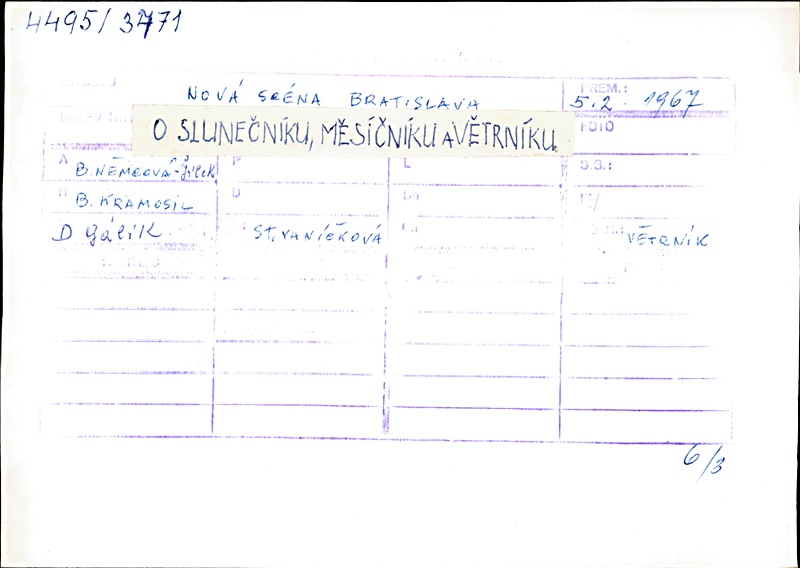 4495/3771
NOVÁ SCÉNA BRATISLAVA
PREM.:
5.2. 1967
O SLUNEČNÍKU, MĚSÍČNÍKU A VĚTRNÍKU
FOTO
A B. NĚMCOVÁ-Jílek
P
L
S.G.:
B. KRAMOSIL
D Gálik
ST. VANÍČKOVÁ
VĚTRNÍK
6/3